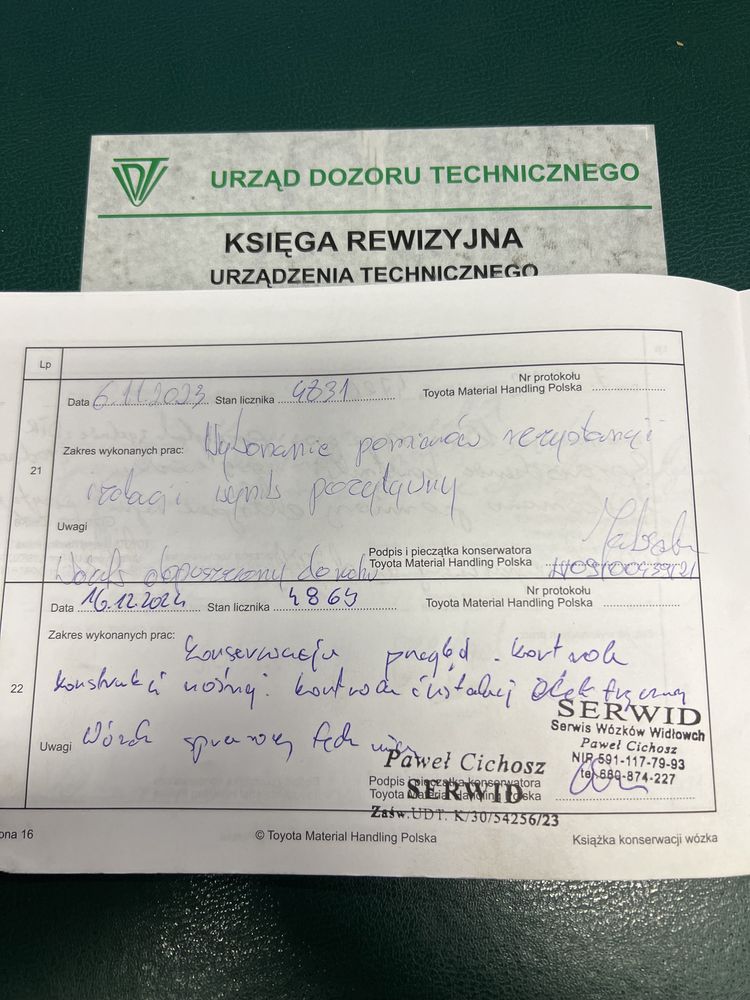 URZĄD DOZORU TECHNICZNEGO
KSIĘGA REWIZYJNA
URZĄDZENIA TECHNICZNEGO
Lp
Data 6.11.2023 Stan licznika 4831
Nr protokołu
Toyota Material Handling Polska
Zakres wykonanych prac: Wykonanie pomiarów rezystancji
21
izolacji wynik pozytywny
Uwagi
Podpis i pieczątka konserwatora
Toyota Material Handling Polska
Wózek dopuszczony do ruchu
Data 16.12.2024 Stan licznika 4869
Nr protokołu
Toyota Material Handling Polska
Zakres wykonanych prac: Konserwacja przegląd. kontrola
22
konstrukcji nośnej. kontrola instalacji elektrycznej
SERWID
Serwis Wózków Widłowch
Paweł Cichosz
NIP 591-117-79-93
tel. 680-874-227
Uwagi Wózek sprawny technicznie
Paweł Cichosz
Podpis i pieczątka konserwatora
Toyota Material Handling Polska
SERWID
Zaśw. UDT. K/30/54256/23
ona 16
© Toyota Material Handling Polska
Książka konserwacji wózka